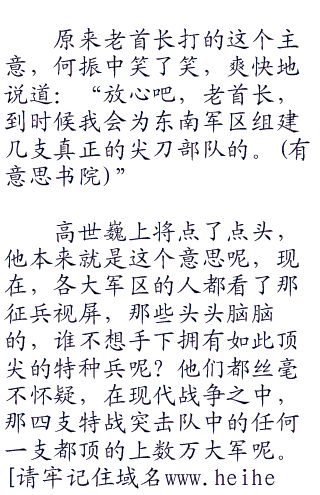 原来老首长打的这个主
意，何振中笑了笑，爽快地
说道：“放心吧，老首长，
到时候我会为东南军区组建
几支真正的尖刀部队的。(有
意思书院)”
高世巍上将点了点头，
他本来就是这个意思呢，现
在，各大军区的人都看了那
征兵视屏，那些头头脑脑
的，谁不想手下拥有如此顶
尖的特种兵呢？他们都丝毫
不怀疑，在现代战争之中，
那四支特战突击队中的任何
一支都顶的上数万大军呢。
[请牢记住域名www.heihe